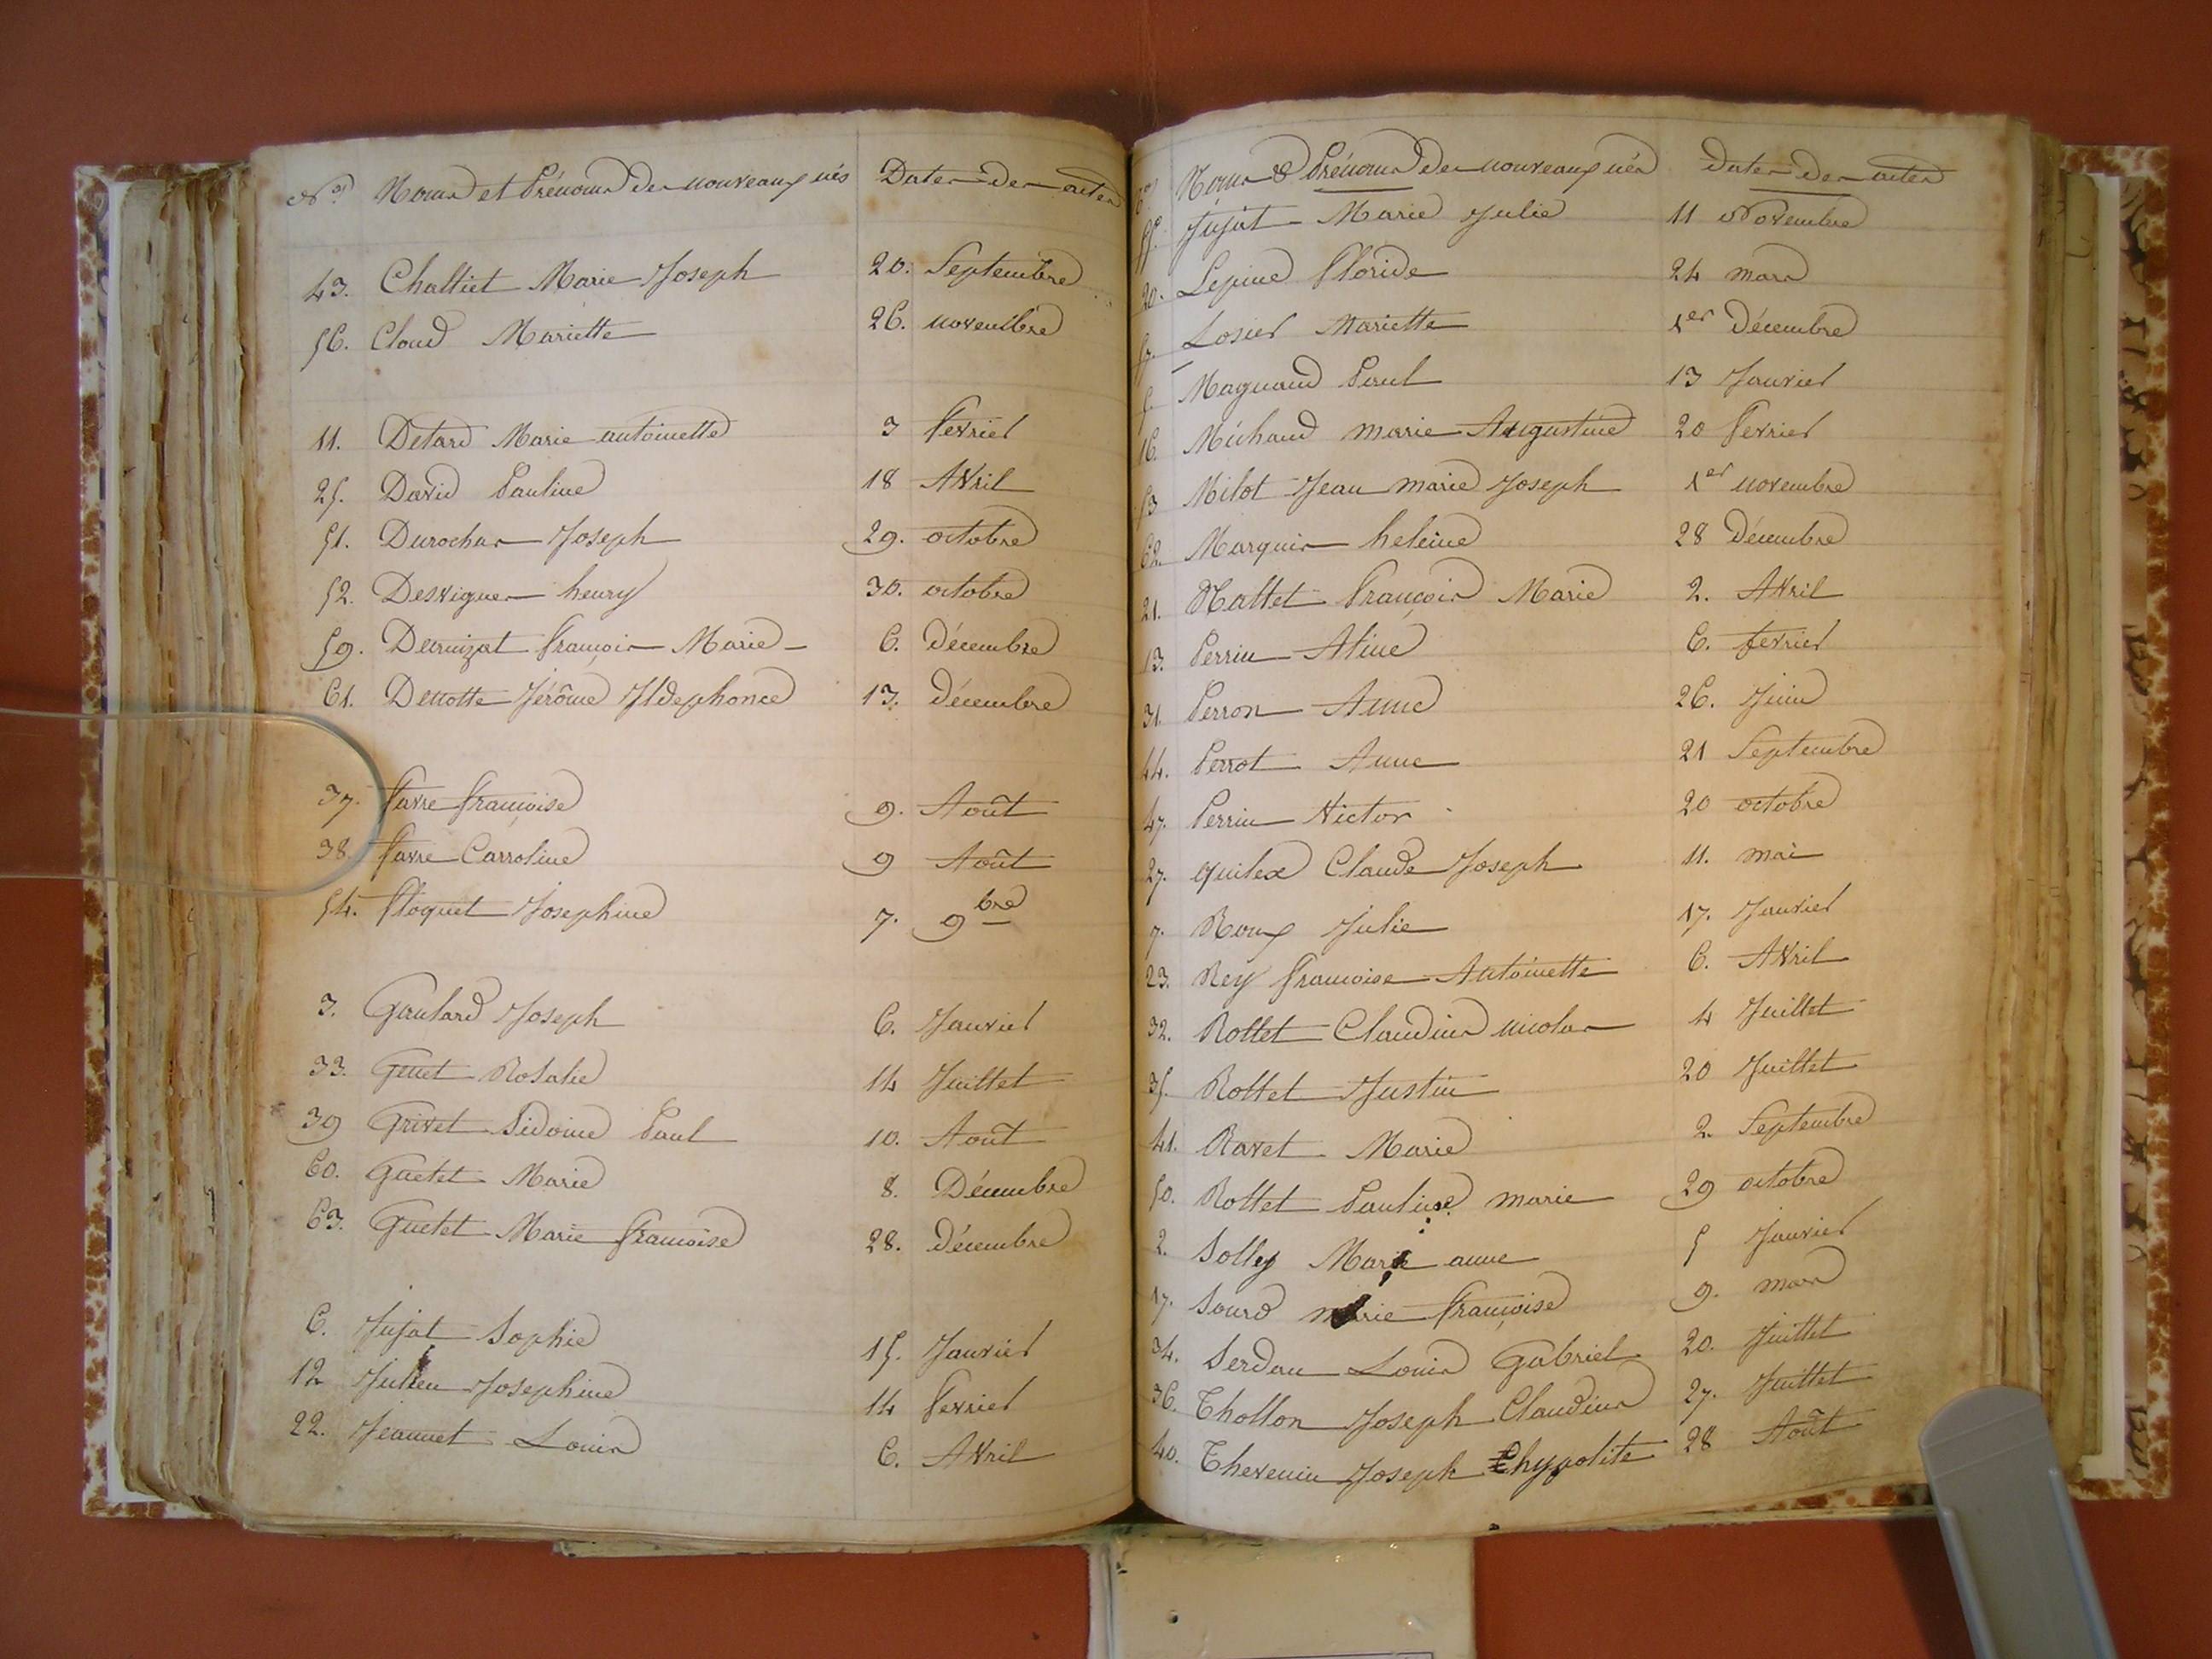 Nos Noms et Prénoms des nouveaux nés Dates des actes
43. Challiet Marie Joseph 20. Septembre
56. Cloud Mariette 26. novembre
11. Detard Marie antoinette 3 fevrier
25. David Pauline 18 Avril
51. Durochas Joseph 29. octobre
52. Desvignes henry 30. octobre
59. Dermizat françois Marie 6. Décembre
61. Denotte Jérôme Ildephonce 13. Décembre
37. favre françoise 9. Août
38. favre Carroline 9 Août
54. floquet Josephine 7. 9bre
3. Goulard Joseph 6. Janvier
33. Genet Rosalie 14 Juillet
39 Grivet Sidoine Paul 10. Août
60. Guetet Marie 8. Décembre
63. Guetet Marie françoise 28. Décembre
6. Jujat Sophie 15. Janvier
12 Julien Josephine 14 fevrier
22. Jeannet Louis 6. Avril
Noms & Prénoms des nouveaux nés dates des actes
55. Jujat Marie Julie 11 Novembre
20. Lepine floride 24 mars
Losier Mariette 1er Décembre
5. Magnand Paul 13 Janvier
16. Michaud marie Augustine 20 fevrier
53 Milot Jean marie Joseph 1er novembre
62. Marquis heleine 28 Décembre
21. Nallet François Marie 2. Avril
13. Perrin Aline 6. fevrier
31. Perron Anne 26. Juin
44. Perrot Anne 21 Septembre
47. Perrin Victor 20 octobre
27. quilex Claude Joseph 11. mai
7. Roux Julie 17. Janvier
23. Rey françoise Antoinette 6. Avril
32. Rollet Claudius nicolas 4 Juillet
35. Rollet Justin 20 Juillet
41. Ravet Marie 2. Septembre
50. Rollet Pauline marie 29 octobre
2. Solley Marie anne 5 Janvier
17. Sourd marie françoise 9. mars
34. Serdau Louis Gabriel 20. Juillet
36. Thollon Joseph Claudius 27. Juillet
40. Thevenin Joseph hypolite 28 Août